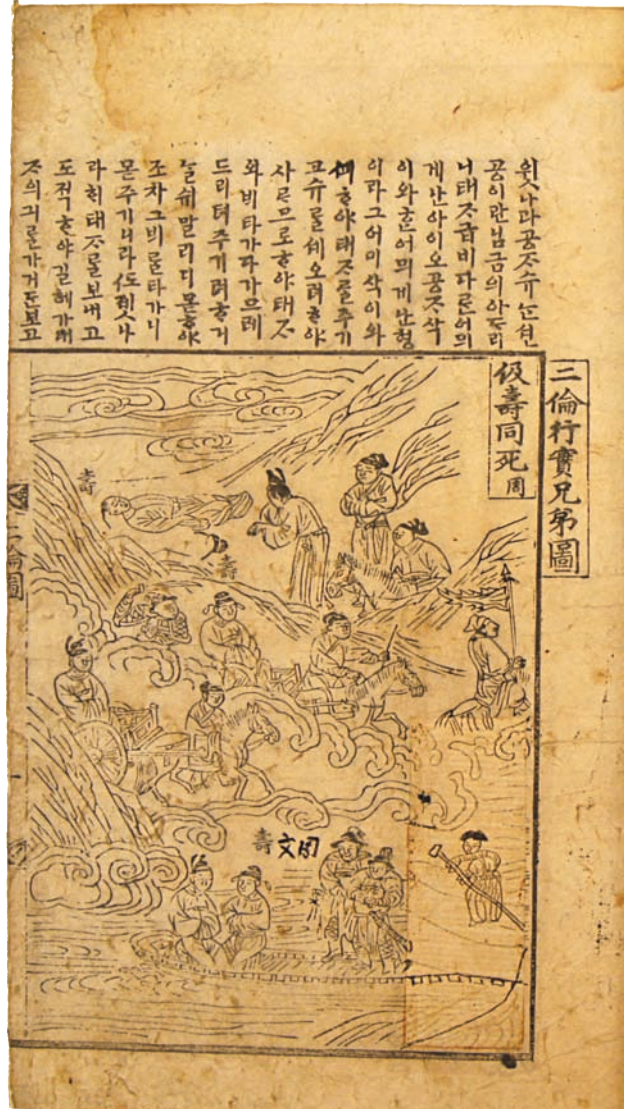 二倫行實兄弟圖
윗나라공ᄌᆞ슈ᄂᆞᆫ션
공이란님금의아ᄃᆞ리
니태ᄌᆞ급비다ᄅᆞᆫ어믜
게난아이오공ᄌᆞ삭
이와ᄒᆞᆫ어믜게난형
이라그어미삭이와
ᄒᆞ야태ᄌᆞᄅᆞᆯ주기
고슈ᄅᆞᆯ셰오려ᄒᆞ야
사ᄅᆞ므로ᄒᆞ야태ᄌᆞ
와ᄇᆡ타가다가므레
드리텨주기려ᄒᆞ거
ᄂᆞᆯ쉬말리디몯ᄒᆞ야
조차그ᄇᆡᄅᆞᆯ타가니
몯주기니라ᄯᅩ졧나
라ᄒᆡ태ᄌᆞᄅᆞᆯ보내고
도적ᄒᆞ야길헤가
ᄌᆞ의긔ᄅᆞᆯ가거든보고
伋壽同死 周
壽
壽
壽 文周
二倫圖
一